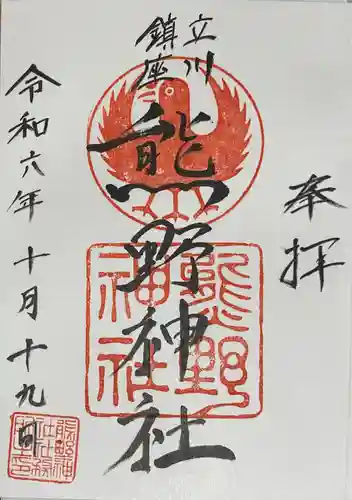 奉拝
立川
鎮座
熊野神社
令和六年十月十九日
熊野
神社